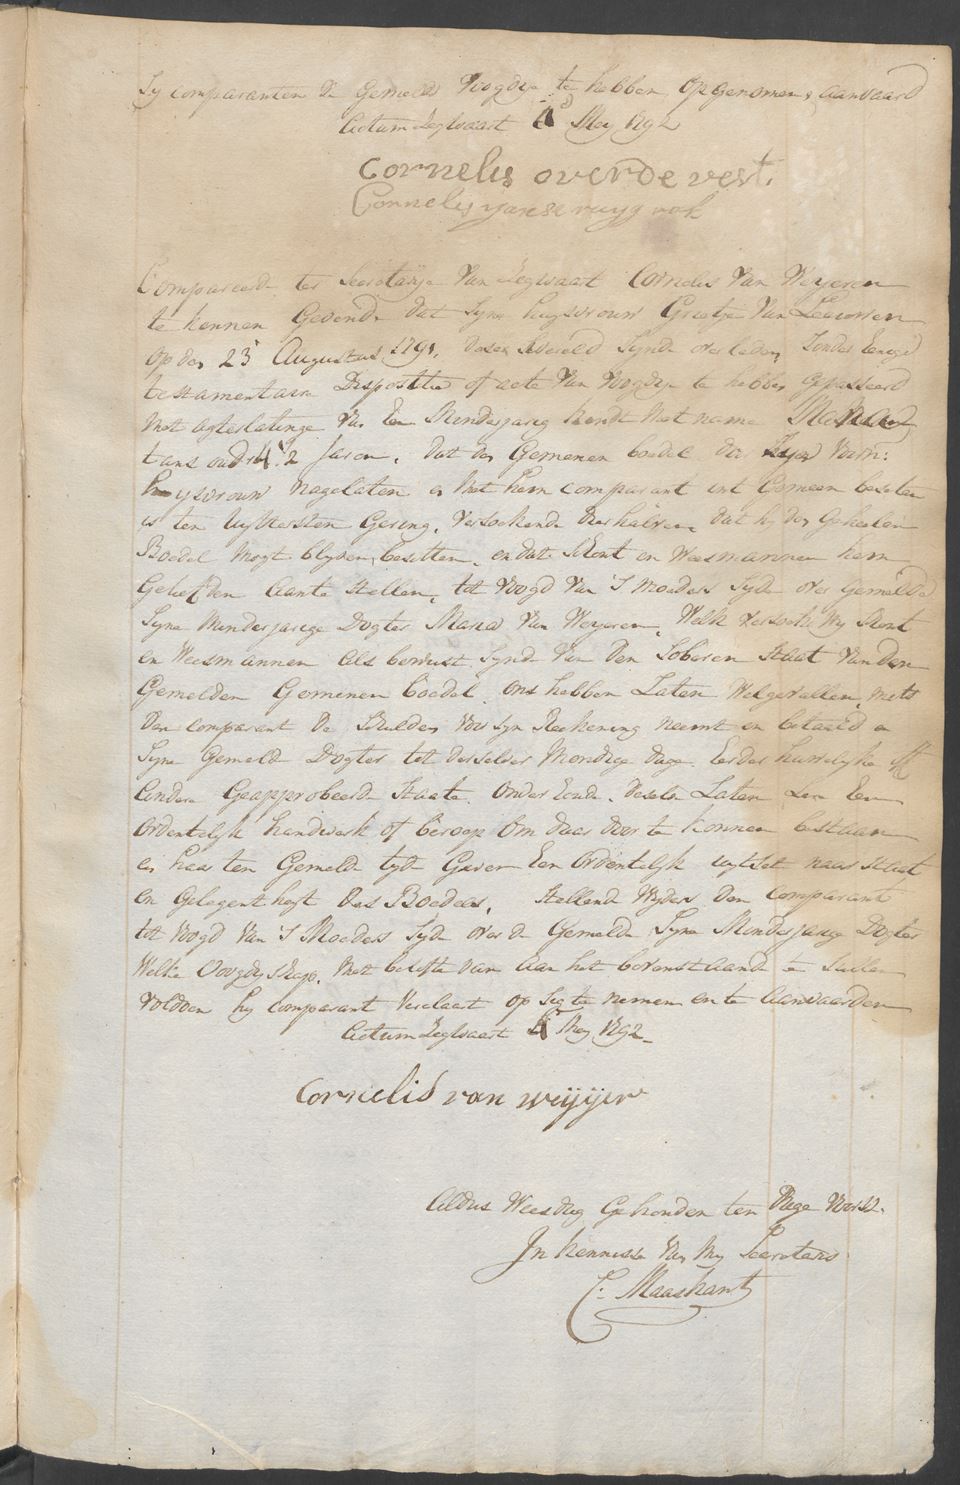 Sy comparanten de Gemelde Voogdye te hebben Opgenomen & aanvaard
Actum Zegwaart 4 May 1792
Cornelis overdevest.
Cornelis ruygrok
Compareerde ter Secretarye Van Zegwaart Cornelis Van Weyeren
te kennen Gevende dat Syne huysvrouw Grietje Van Leeuwen
Op den 23 Augustus 1791. dese Wereld Synde overleden, Sonder Eenige
testamentaire Dispositie of acte Van Voogdye te hebben Gepasseerd
Met agterlatinge Van Een Minderjarig kindt Met name Maria
tans oud Jaren. dat den Gemenen boedel door Zyn Voorn:
huysvrouw nagelaten en Met hem comparant int Gemeen beseten
is ten Uytersten Gering. Versoekende derhalven dat hy den Geheelen
Boedel Mogt blyven besitten, en dat Schout en Weesmannen hem
Geliefden Aante Stellen, tot Voogd Van 'S Moeders Syde over Gemelde
Syne Minderjarige Dogter Maria Van Weyeren. Welk Versoek Wy Schout
en Weesmannen als bewust Synde Van Den Soberen Staat Van den
Gemelden Gemenen boedel ons hebben Laten Welgevallen, mits
Den comparant De Schulden Voor Syn Reekening neemt en betaeld en
Syne Gemelde Dogter tot derselver Mondige Dage Eerder huwelyke of
Andere Geapprobeerde Staate Onderhoude. deselve Laten Leeren Een
Ordentelyk handwerk of beroep Om daar door te konnen bestaan
en haar ten Gemelde tyd Geven Een Ordentelyk uytset naar Staat
en Gelegentheyt Des Boedels, Stellende Wyders Den Comparant
tot Voogd Van 'S Moeders Syde over de Gemelde Syne Minderjarige Dogter
Welke Voogdyschap, Met belofte van Aan het bovenstaande te Sullen
Voldoen hy Comparant Verclaart op Sig te nemen en te Aanvaarden
Actum Zegwaart 4 May 1792
Cornelis van weijijer
Aldus Weesdag Gehouden ten Dage Voorsz.
In kennisse Van My Secretaris
C. Maaskant